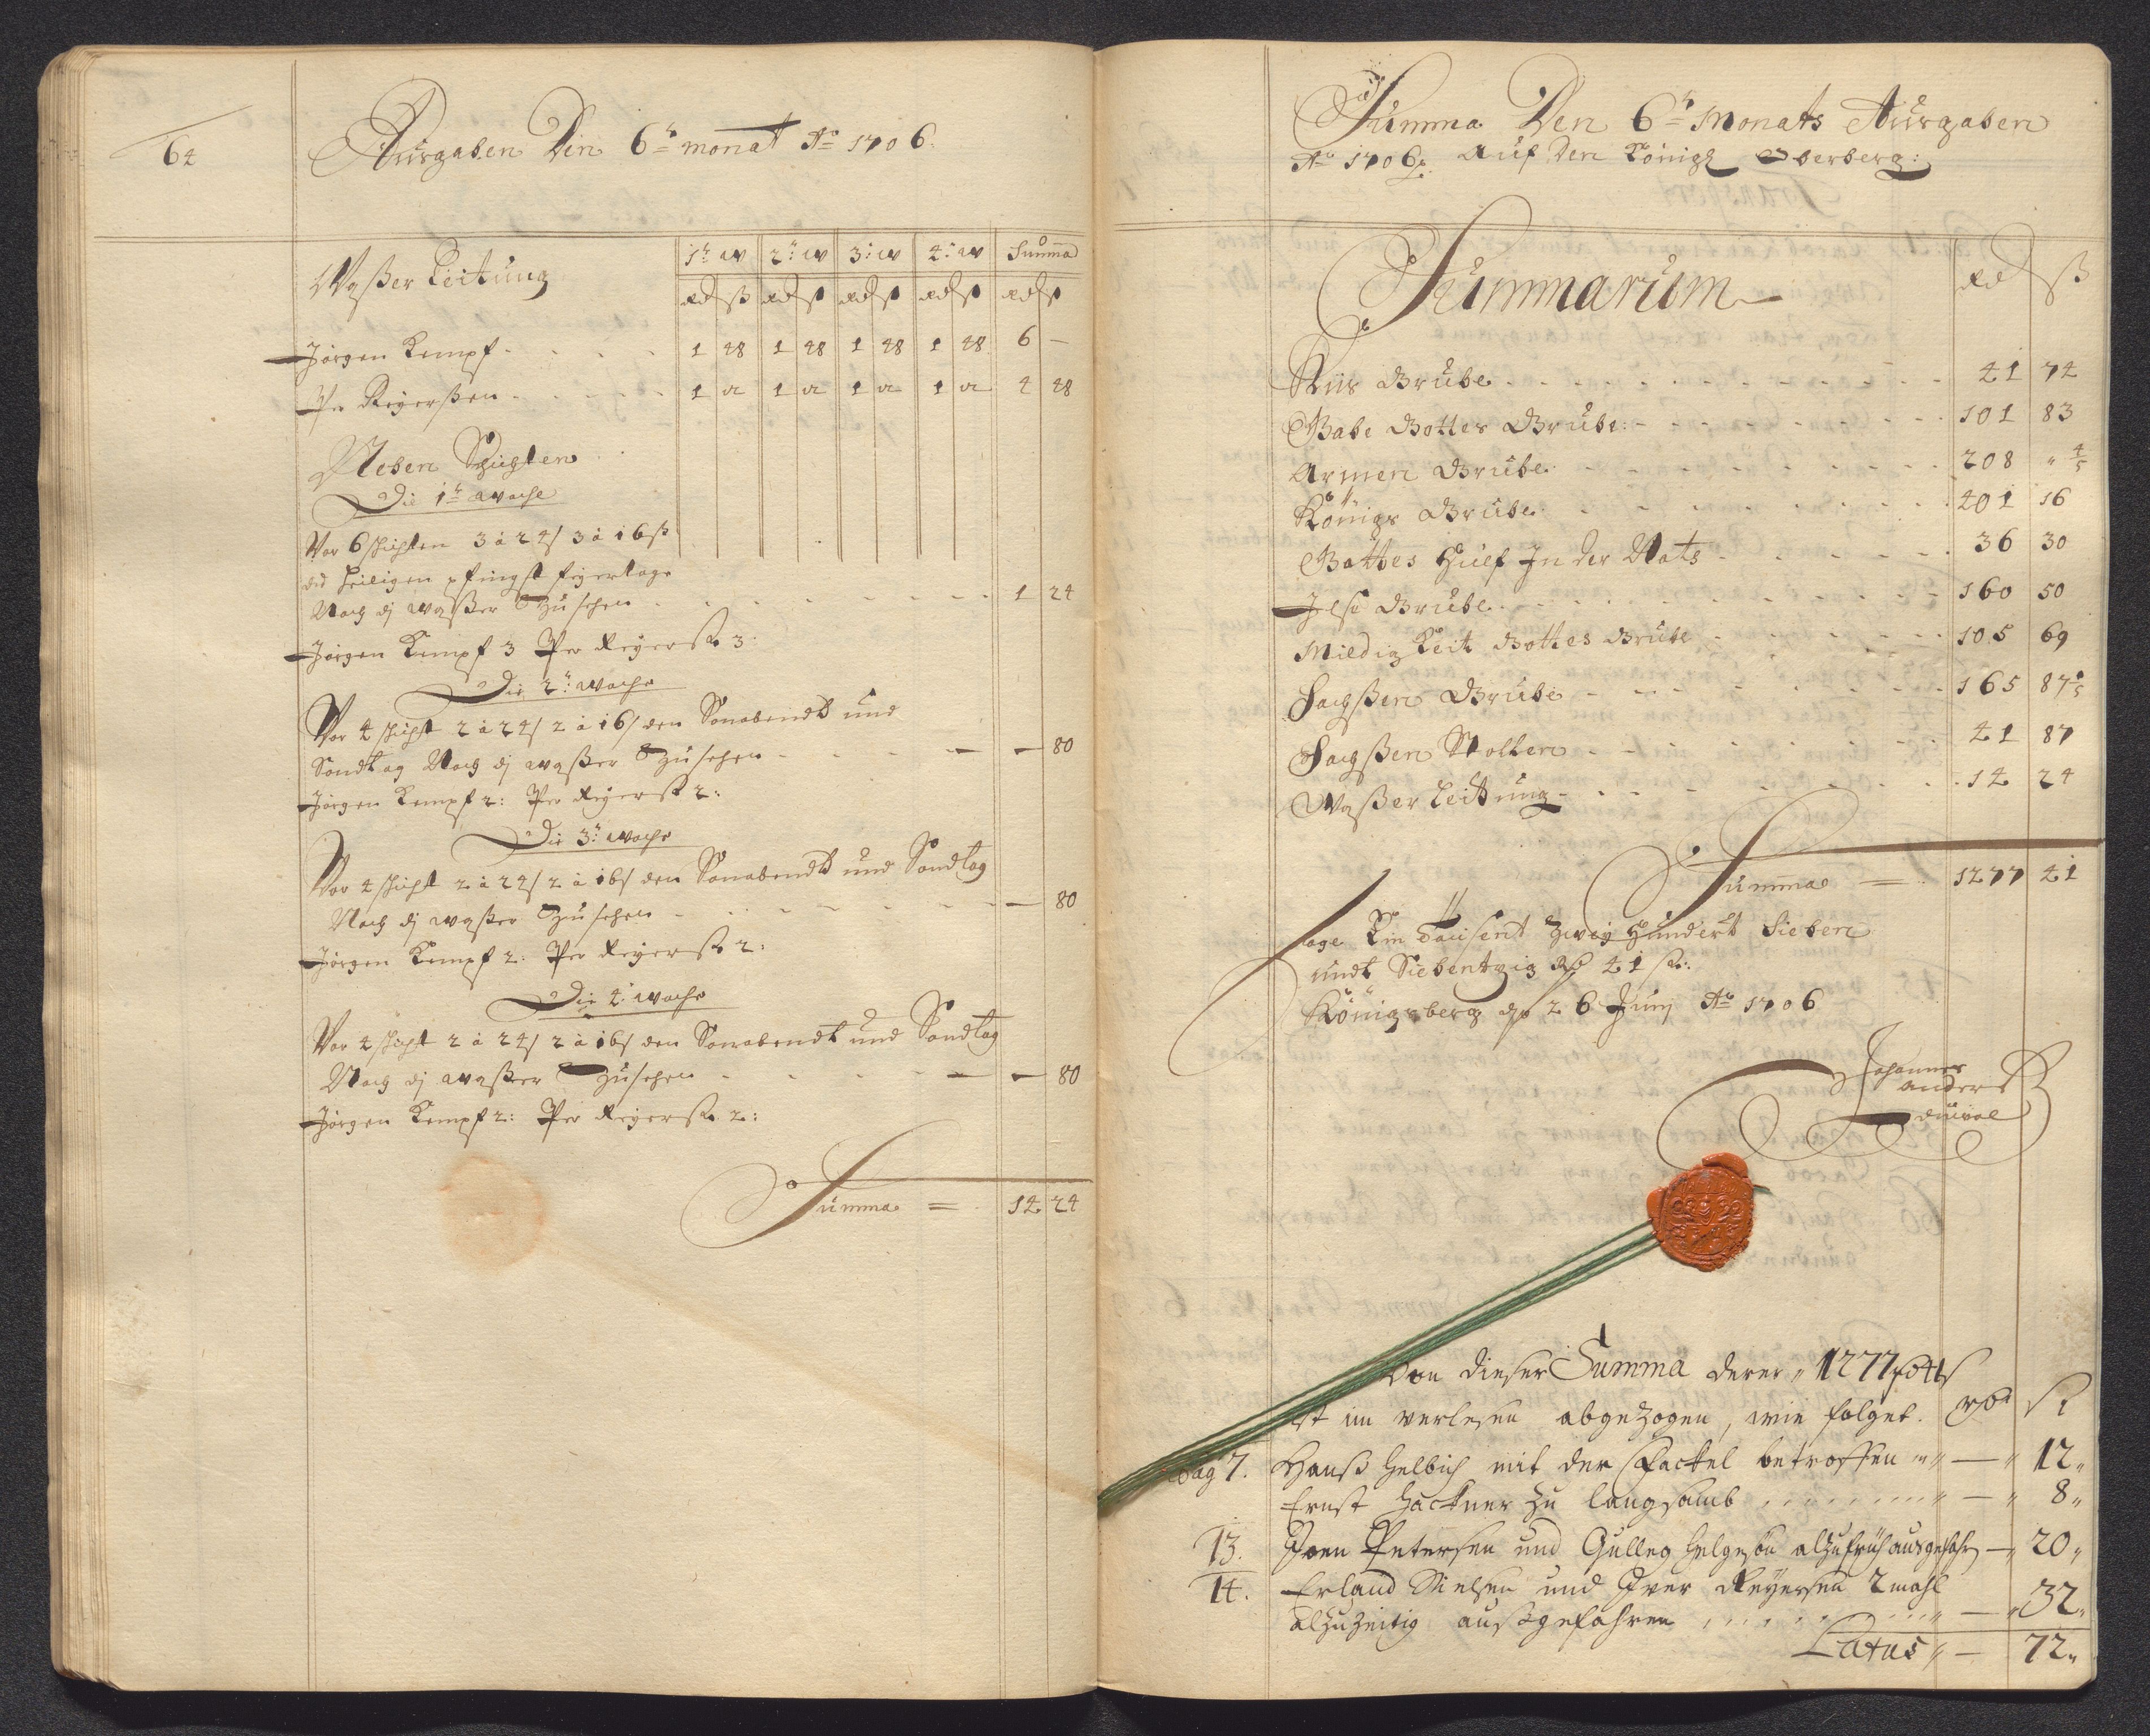 64
Ausgaben Den 6tr monat Ao 1706.
Waßer Leitung
1te W 2te W 3te W 4te W Summa
Rd ß Rd ß Rd ß Rd ß Rd ß
Jörgen Kempf 1 48 1 48 1 48 1 48 6 —
Per Reÿerßen 1 12 1 12 1 12 1 12 4 48
Neben Schichten
Die 1te Woche
Vor 6 schichten 3 à 24 ß 3 à 16 ß
die heiligen pfingst feÿertage
Nach dz Waßer Zu sehen 1 24
Jörgen Kempf 3 Per Reÿerß: 3:
Die 2te Woche
Vor 4 schicht 2 à 24 ß 2 à 16 ß den Sonabendt und
Sondtag Nach dz waßer Zu sehen — 80
Jörgen Kempf 2: Per Reÿerß 2:
Die 3te Woche
Vor 4 schicht 2 à 24 ß 2 à 16 ß den Sonabendt und Sondtag
Nach dz waßer Zu sehen — 80
Jörgen Kempf 2: Per Reÿerß: 2:
Die 4te Woche
Vor 4 schicht 2 à 24 ß 2 à 16 ß den Sonabendt und Sondtag
Nach dz waßer Zu sehen — 80
Jörgen Kempf 2: Per Reÿerß: 2:
Summa = 14 24
Summa Den 6tr Monats Ausgaben
Ao 1706. Auf Den Königl Oberberg:
Summarium
Rd ß
Grube 41 74
Gabe Gottes Grube 101 83
Armen Grube 208 " 4/5
Königs Grube 401 16
Gottes Hülf In der Nots 36 30
Jelse Grube 160 50
Mildigkeit Gottes Grube 105 69
Sachßen Grube 165 87 1/5
Sachßen Stollen 41 87
Waßer Leittung 14 24
Summa = 1277 41
Sage Ein Tausent Zweÿ Hundert Sieben
undt Siebentzig Rd 41 ß:
Königsberg dn 26 Junÿ Ao 1706
Johannes
Anders
Von dieser Summa derer " 1277 Rd 41 ß
ist im verlesen abgezogen, wie folget. Rd ß
pag 7. Hanß Helbich mit der Fackel betroffen — " 12 "
Ernst Hackner zu langsamb — " 8 "
13. Joen Petersen und Gulleg Helgesön alzufrüh ausgefahr — " 20 "
14. Erland Nielsen und Iver Reÿersen 2 mahl
alzuzeitig außgefahren — " 32 "
Latus " — 72 "